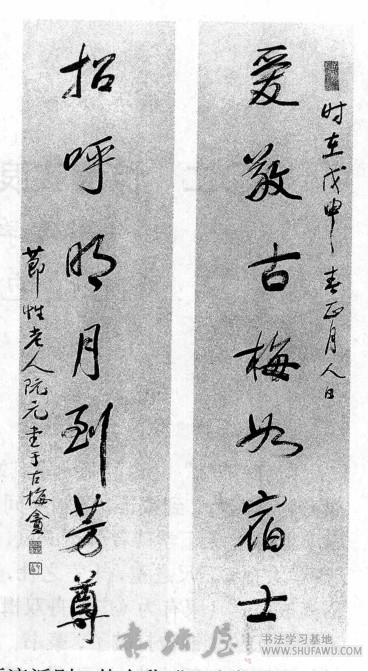 时在戊申春正月人日
爱敬古梅如宿士
招呼明月到芳尊
节性老人阮元书于古梅盦
书法屋
书法学习基地
WWW.SHUFAWU.COM